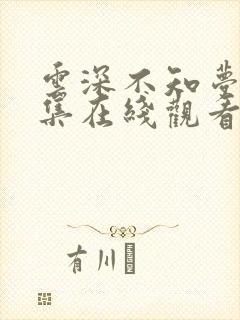 雲深不知夢
集在綫觀看
有川